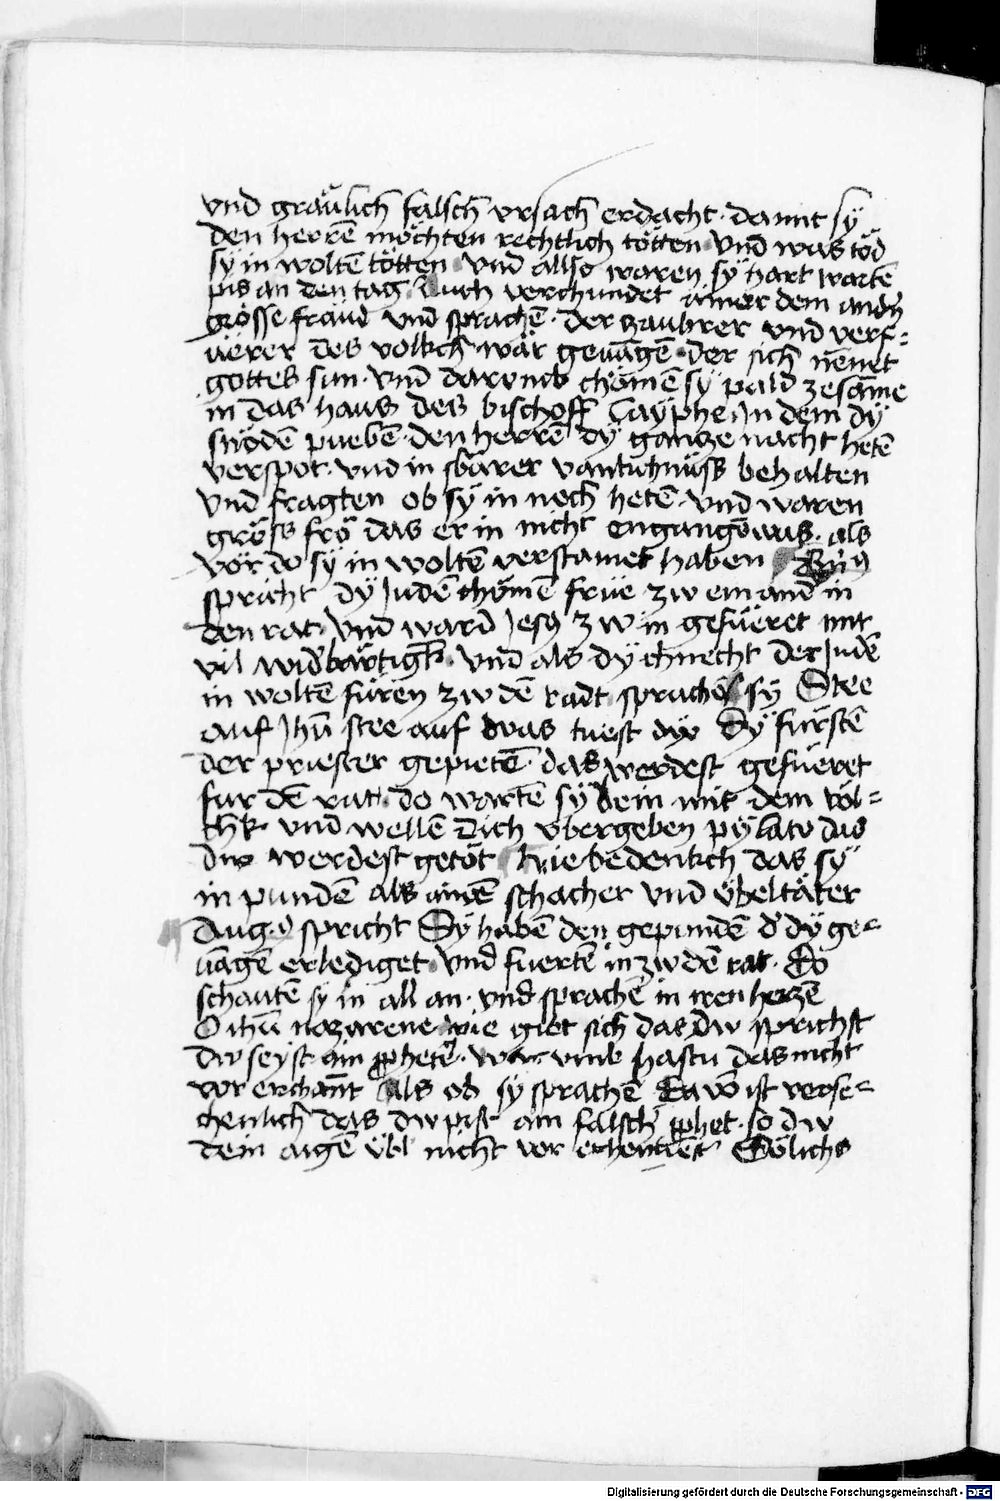 vnd gräulich falsch vrsach erdacht · damit sÿ
den herrē möchten rechtlich tötten vnd was töd
sÿ in woltē tötten vnd allso waren sÿ hart wartē
pis an den tag · Auch verchundet ainer dem andn̄
grösse fräud vnd sprachē · der zaubrer vnd verf-
üerer des volkch wär geuāgē · der sich nēnet
gottes sun · vnd darvmb chömē sÿ pald zesāme
in das haus des bischoff Cayphe · In dem dÿ
snödē puebē · den herrē dÿ gantze nacht hetē
verspot · vnd in swärer vanckhnüss behalten
vnd fragten ob sÿ in noch hetē vnd waren
gröss frö das er in nicht engangē was · als
vor do sÿ in woltē verstainet haben
spricht dÿ Judē chömē früe zw ein and̄ in
den rat · vnd ward Jesꝰ zw in gefüeret mit
vil wid̄bärtigk̄ · vnd als dÿ chnecht der Judē
in woltē füren zw dē radt sprachē sÿ Stee
auf Jhū stee auf was tuest dw Dÿ fürstē
der priester gepietē · das werdest gefüeret
fur dē rat · do wartē sÿ dein mit dem völ-
chk · vnd wellē dich vbergeben pÿlato das
dw werdest getöt wie bedenkch das sÿ
in pundē als ainē schacher vnd übeltäter
Aug · spricht Sÿ habē den gepundē d̄ dÿ ge-
uāgē erlediget vnd fuertē in zw dē rat · Do
schautē sÿ in all an · vnd sprachē in iren hertzē
O ihū nazarene wie giet sich das dw sprichst
dw seyst ain ꝓphetē · war vmb hastu das nicht
vor erchānt als ob sÿ sprachē Ettwo ist verse-
chenlich das dw pist ain falsch̄ ꝓphet · so dw
dein aigē übl nicht vor erkentest Sölichs